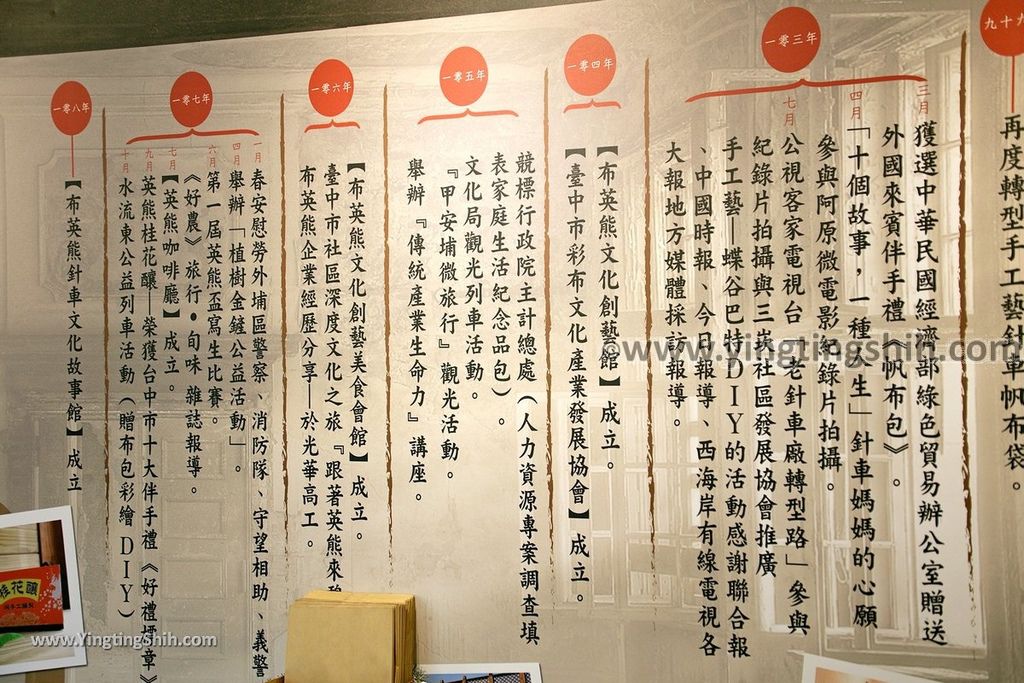 九十九
再度轉型手工藝針車帆布袋。
一零三年
三月
獲選中華民國經濟部綠色貿易辦公室贈送
外國來賓伴手禮《帆布包》。
四月
「十個故事,一種人生」針車媽媽的心願
參與阿原微電影紀錄片拍攝。
七月
公視客家電視台「老針車廠轉型路」參與
紀錄片拍攝與三崁社區發展協會推廣
手工藝—蝶谷巴特DIY的活動感謝聯合報
、中國時報、今日報導、西海岸有線電視各
大報地方媒體採訪報導。
一零四年
【布英熊文化創藝館】成立。
【臺中市彩布文化產業發展協會】成立。
一零五年
競標行政院主計總處(人力資源專案調查填
表家庭生活紀念品包)。
文化局觀光列車活動。
『甲安埔微旅行』觀光活動。
舉辦『傳統產業生命力』講座。
一零六年
【布英熊文化創藝美食會館】成立。
臺中市社區深度文化之旅『跟著英熊來
布英熊企業經歷分享—於光華高工。
一零七年
一月
春安慰勞外埔區警察、消防隊、守望相助、義警
四月
舉辦「植樹金鏟公益活動」。
六月
第一屆英熊盃寫生比賽。
《好農》旅行•旬味 雜誌報導。
七月
【英熊咖啡廳】成立。
九月
英熊桂花釀—榮獲台中市十大伴手禮《好禮標章》
十月
水流東公益列車活動(贈布包彩繪DIY)
一零八年
【布英熊針車文化故事館】成立
桂花釀
©www.YingtingShih.com
www.YingtingShih.com